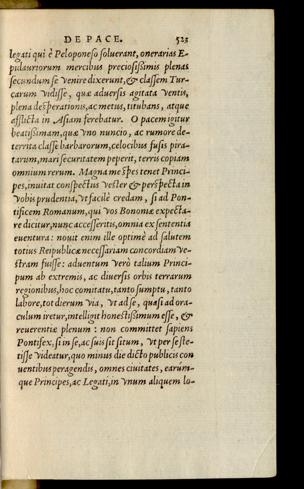 DE PACE. 523
legati qui è Peloponeso soluerant, onerarias E-
pidauriorum mercibus preciosissimis plenas
secundum se venire dixerunt, & classem Tur-
carum vidisse, quæ aduersis agitata ventis,
plena desperationis, ac metus, titubans, atque
afflicta in Asiam ferebatur. O pacem igitur
beatissimam, quæ vno nuncio, ac rumore de-
territa classe barbarorum, celocibus fusis pira-
tarum, mari securitatem peperit, terris copiam
omnium rerum. Magna me spes tenet Princi-
pes, inuitat conspectus vester & perspecta in
vobis prudentia, vt facilè credam, si ad Pon-
tificem Romanum, qui vos Bononiæ expecta-
re dicitur, nunc accesseritis, omnia ex sententia
euentura: nouit enim ille optimè ad salutem
totius Reipublicæ necessariam concordiam ve-
stram fuisse: aduentum verò talium Princi-
pum ab extremis, ac diuersis orbis terrarum
regionibus, hoc comitatu, tanto sumptu, tanto
labore, tot dierum via, vt ad se, quasi ad ora-
culum iretur, intelligit honestissimum esse, &
reuerentiæ plenum: non committet sapiens
Pontifex, si in se, ac suis sit situm, vt per se ste-
tisse videatur, quo minus die dicto publicis con
uentibus peragendis, omnes ciuitates, earúm-
que Principes, ac Legati, in vnum aliquem lo-